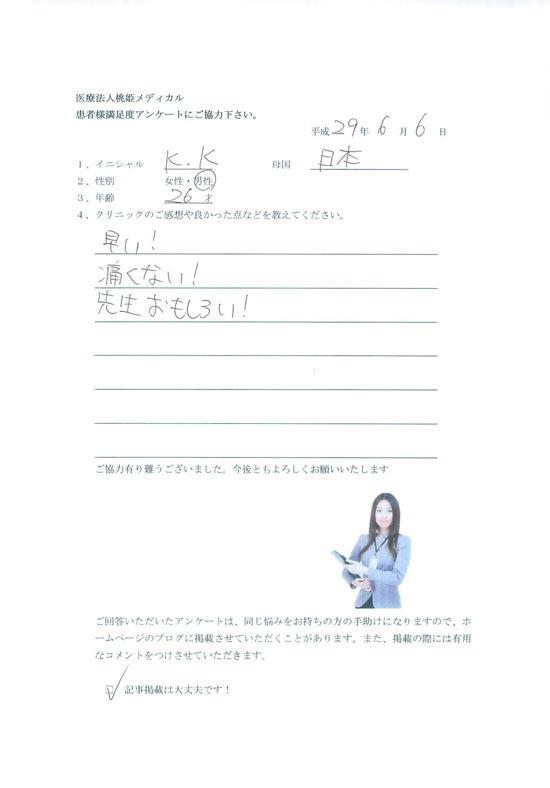 医療法人桃姫メディカル
患者様満足度アンケートにご協力下さい。
平成 29 年 6 月 6 日
1、イニシャル K.K 母国 日本
2、性別 女性・男性
3、年齢 26 才
4、クリニックのご感想や良かった点などを教えてください。
早い!
痛くない!
先生おもしろい!
ご協力有り難うございました。今後ともよろしくお願いいたします
ご回答いただいたアンケートは、同じ悩みをお持ちの方の手助けになりますので、ホ
ームページのブログに掲載させていただくことがあります。また、掲載の際には有用
なコメントをつけさせていただきます。
☑ 記事掲載は大丈夫です!